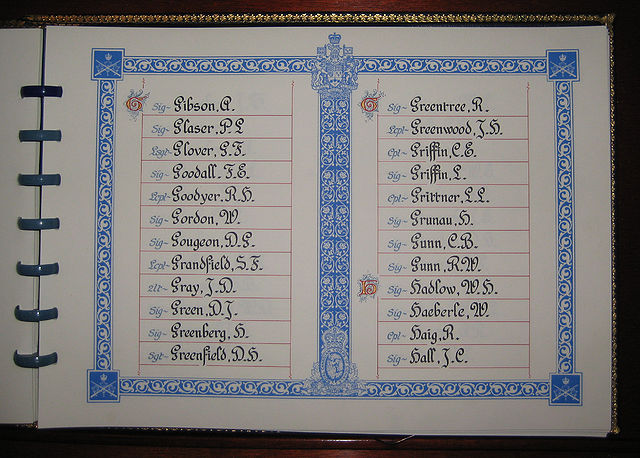 G Sig~ Gibson, A.
Sig~ Glaser, P.L
Lsgt~ Glover, G.F.
Sig~ Goodall, F.E.
Lcpl~ Goodyer, R.H.
Sig~ Gordon, W.
Sig~ Gougeon, D.G.
Lcpl~ Grandfield, S.F.
2Lt~ Gray, J.D.
Sig~ Green, D.J.
Sig~ Greenberg, H.
Sgt~ Greenfield, D.H.
G Sig~ Greentree, R.
Lcpl~ Greenwood, J.H.
Cpl~ Griffin, C.E.
Sig~ Griffin, L.
Cpl~ Grittner, L.L.
Sig~ Grunau, H.
Sig~ Gunn, C.B.
Sig~ Gunn, R.W.
H Sig~ Hadlow, W.H.
Sig~ Haeberle, W.
Cpl~ Haig, R.
Sig~ Hall, J.C.